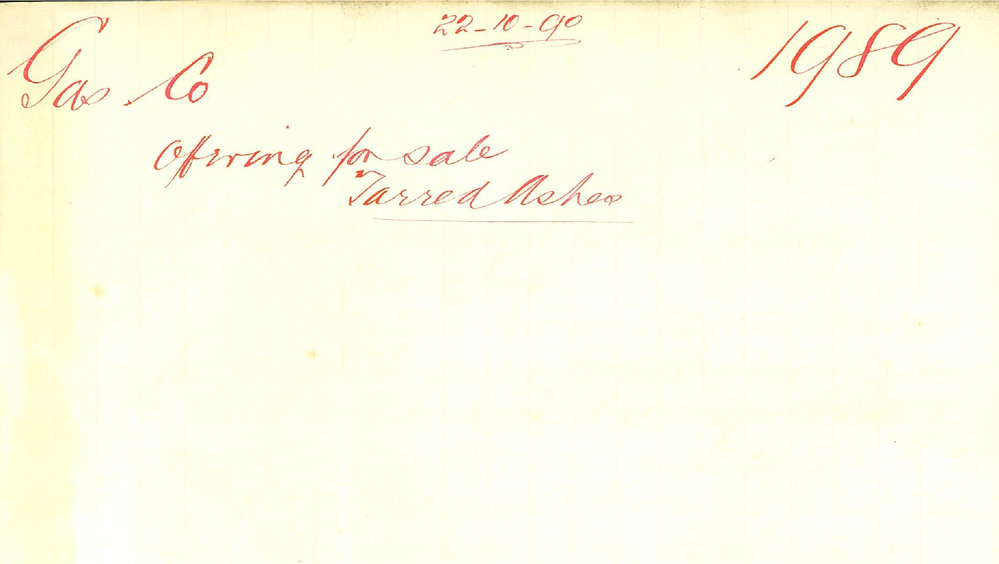 22-10-90
Gas Co
1989
Offering for sale
Tarred Ashes